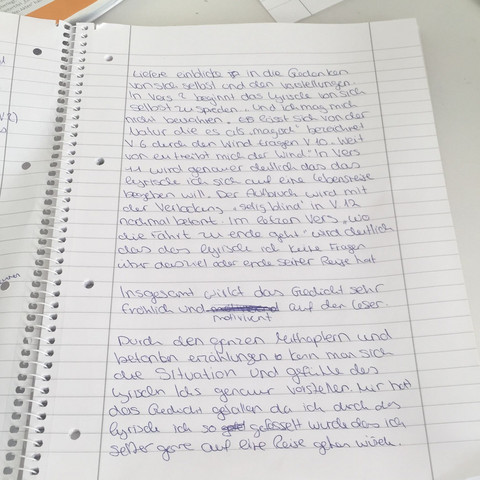 tiefere einblicke in die Gedanken
von sich selbst und den vorstellungen.
In Vers 7 beginnt das lyrische von sich
selbst zu sprechen. „Und ich mag mich
nicht bewahren". es lässt sich von der
Natur die es als „magisch" bezeichnet
V.6 durch den Wind tragen V.10. „Weit
von euch treibt mich der Wind" In Vers
11 wird genauer deutlich dass das
lyrische ich sich auf eine Lebensreise
begeben will. Der Aufbruch wird mit
der Verbindung „selig blind" in V.12
nochmal betont. Im letzen Vers „wo
die Fahrt zu ende geht" wird deutlich
das das lyrische ich keine Fragen
über das Ziel oder ende seiner Reise hat
Insgesamt wirkt das Gedicht sehr
fröhlich und auf den Leser.
motiviert
Durch den ganzen Methaphern und
betonten erzählungen kann man sich
die Situation und gefühle des
lyrischen Ichs genauer vorstellen. Mir hat
das Gedicht gefallen da ich durch das
lyrische ich so gefesselt wurde das ich
selber gerne auf eine Reise gehen würde.